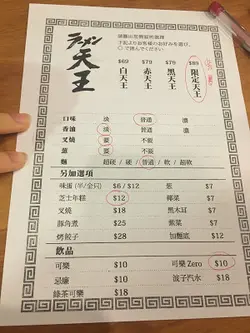 ラーメン
天王
$69 $79 $79 $89
白天王 赤天王 黑天王 限定天王
口味 淡 普通 濃
香油 淡 普通 濃
叉燒 要 不要
蔥 要 不要
麵 超硬 / 硬 / 普通 / 軟 / 超軟
另加選項
味蛋(半/全只) $6 / $12 蔥 $7
芝士年糕 $12 椰菜 $7
叉燒 $18 黑木耳 $7
豚角煮 $25 紫菜 $7
烤餃子 $28 加麵底 $12
飲品
可樂 $10 可樂 Zero $10
忌廉 $10 波子汽水 $18
綠茶可樂 $18